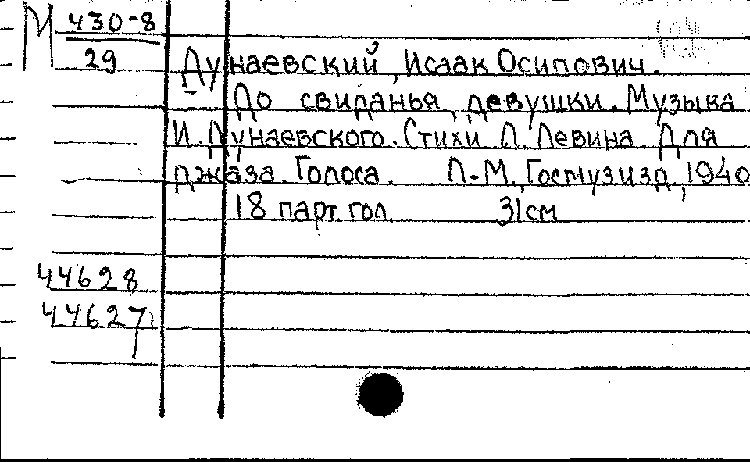 М 430-8
29
Дунаевский, Исаак Осипович.
До свиданья, девушки. Музыка
И. Дунаевского. Стихи Л. Левина. Для
джаза. Голоса. Л.-М., Госмузизд, 1940
18 парт. гол. 31 см
44628
44627